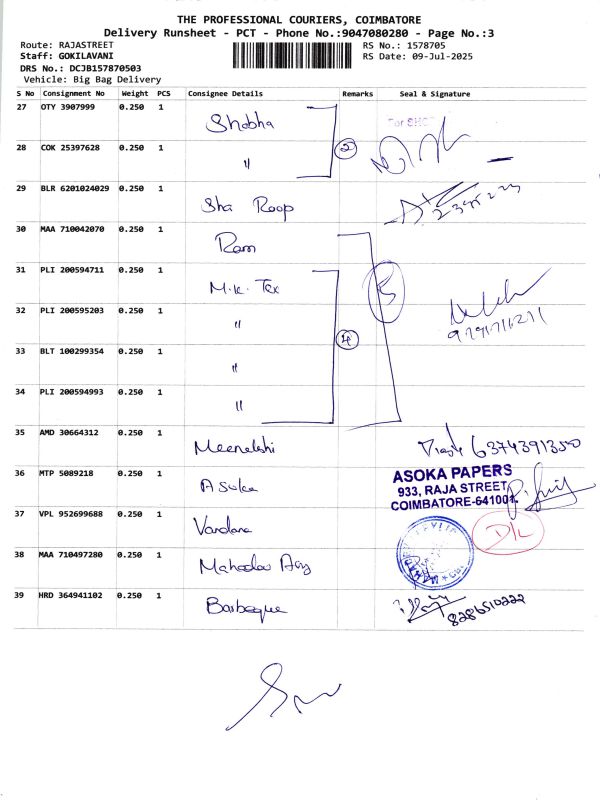 THE PROFESSIONAL COURIERS, COIMBATORE
Delivery Runsheet - PCT - Phone No.:9047080280 - Page No.:3
Route: RAJASTREET
RS No.: 1578705
Staff: GOKILAVANI
RS Date: 09-Jul-2025
DRS No.: DCJB157870503
Vehicle: Big Bag Delivery
S No Consignment No Weight PCS Consignee Details Remarks Seal & Signature
27 OTY 3907999 0.250 1 Shobha
28 COK 25397628 0.250 1 " 2
29 BLR 6201024029 0.250 1 Sha Roop
30 MAA 710042070 0.250 1 Ram
31 PLI 200594711 0.250 1 M.K. Tex 5
32 PLI 200595203 0.250 1 "
33 BLT 100299354 0.250 1 " 4
34 PLI 200594993 0.250 1 "
35 AMD 30664312 0.250 1 Meenakshi 6374391350
36 MTP 5089218 0.250 1 Asoka
ASOKA PAPERS
933, RAJA STREET,
COIMBATORE-641001.
37 VPL 952699688 0.250 1 Vandana D/L
38 MAA 710497280 0.250 1
39 HRD 364941102 0.250 1 Barbeque 8286510222